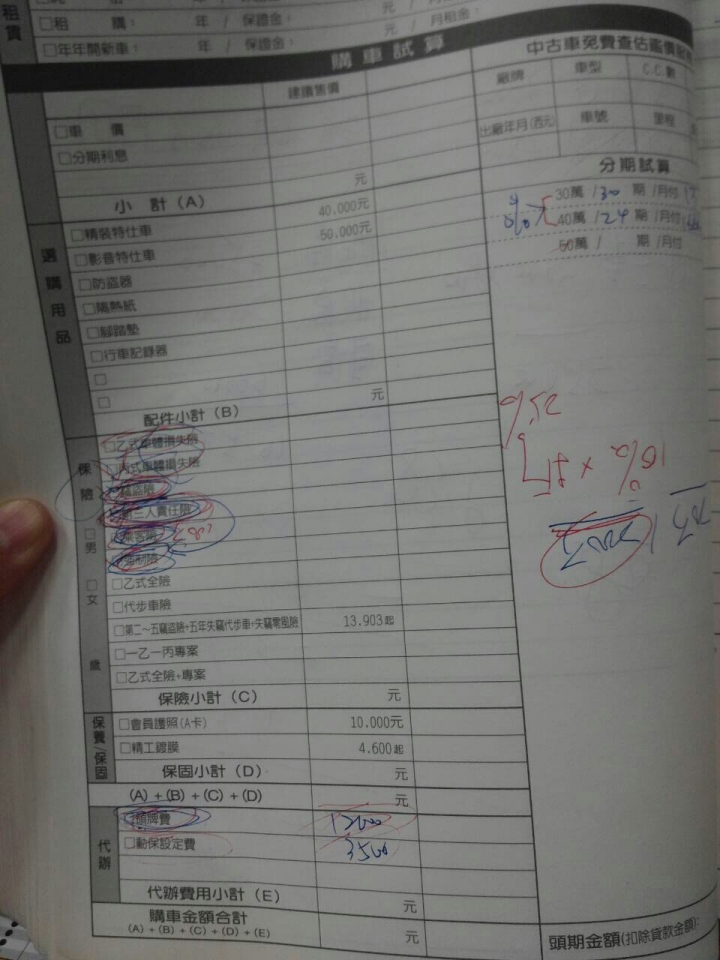 租賃
□租 購: 年 / 保證金: 元 / 月租金:
□年年開新車: 年 / 保證金: 元 / 月租金:
購車試算
建議售價
□車 價
□分期利息
元
小 計 (A)
選購用品
□精裝特仕車 40.000元
□影音特仕車 50.000元
□防盜器
□隔熱紙
□腳踏墊
□行車記錄器
□
□
配件小計 (B) 元
保險
□男
□女
歲
□乙式車體損失險
□丙式車體損失險
竊盜險
第三人責任險
乘客險
強制險
□乙式全險
□代步車險
□第二~五竊盜險+五年失竊代步車+失竊零風險 13.903起
□一乙一丙專案
□乙式全險+專案
保險小計 (C) 元
保養/保固
□會員護照(A卡) 10.000元
□精工鍍膜 4.600起
保固小計 (D) 元
(A) + (B) + (C) + (D) 元
代辦
□領牌費 12000
□動保設定費 3500
代辦費用小計 (E) 元
購車金額合計 元
(A) + (B) + (C) + (D) + (E)
中古車免費查估鑑價
廠牌 車型 C.C.數
出廠年月(西元) 車號 里程
分期試算
30萬 / 30 期 / 月付
40萬 / 24 期 / 月付
50萬 / 期 / 月付
頭期金額(扣除貸款金額):